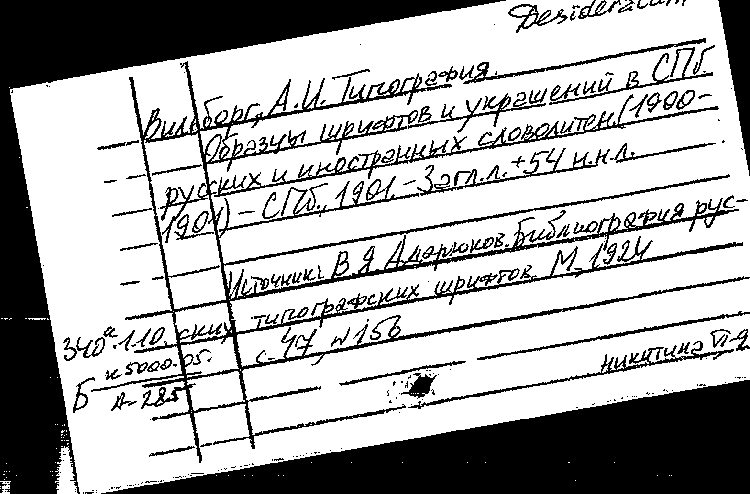 Desideratum
Вильборг, А.И. Типография.
Образцы шрифтов и украшений в СПб
русских и иностранных словолитен (1900-
1901) - СПб., 1901. - Загл.л. + 54 н.н.л.
Источник: В.Я. Адарюков. Библиография рус-
ских типографских шрифтов. М., 1924
с. 47, № 156
340а.110.
к 5000.05.
Б А-285
никитина VI-9